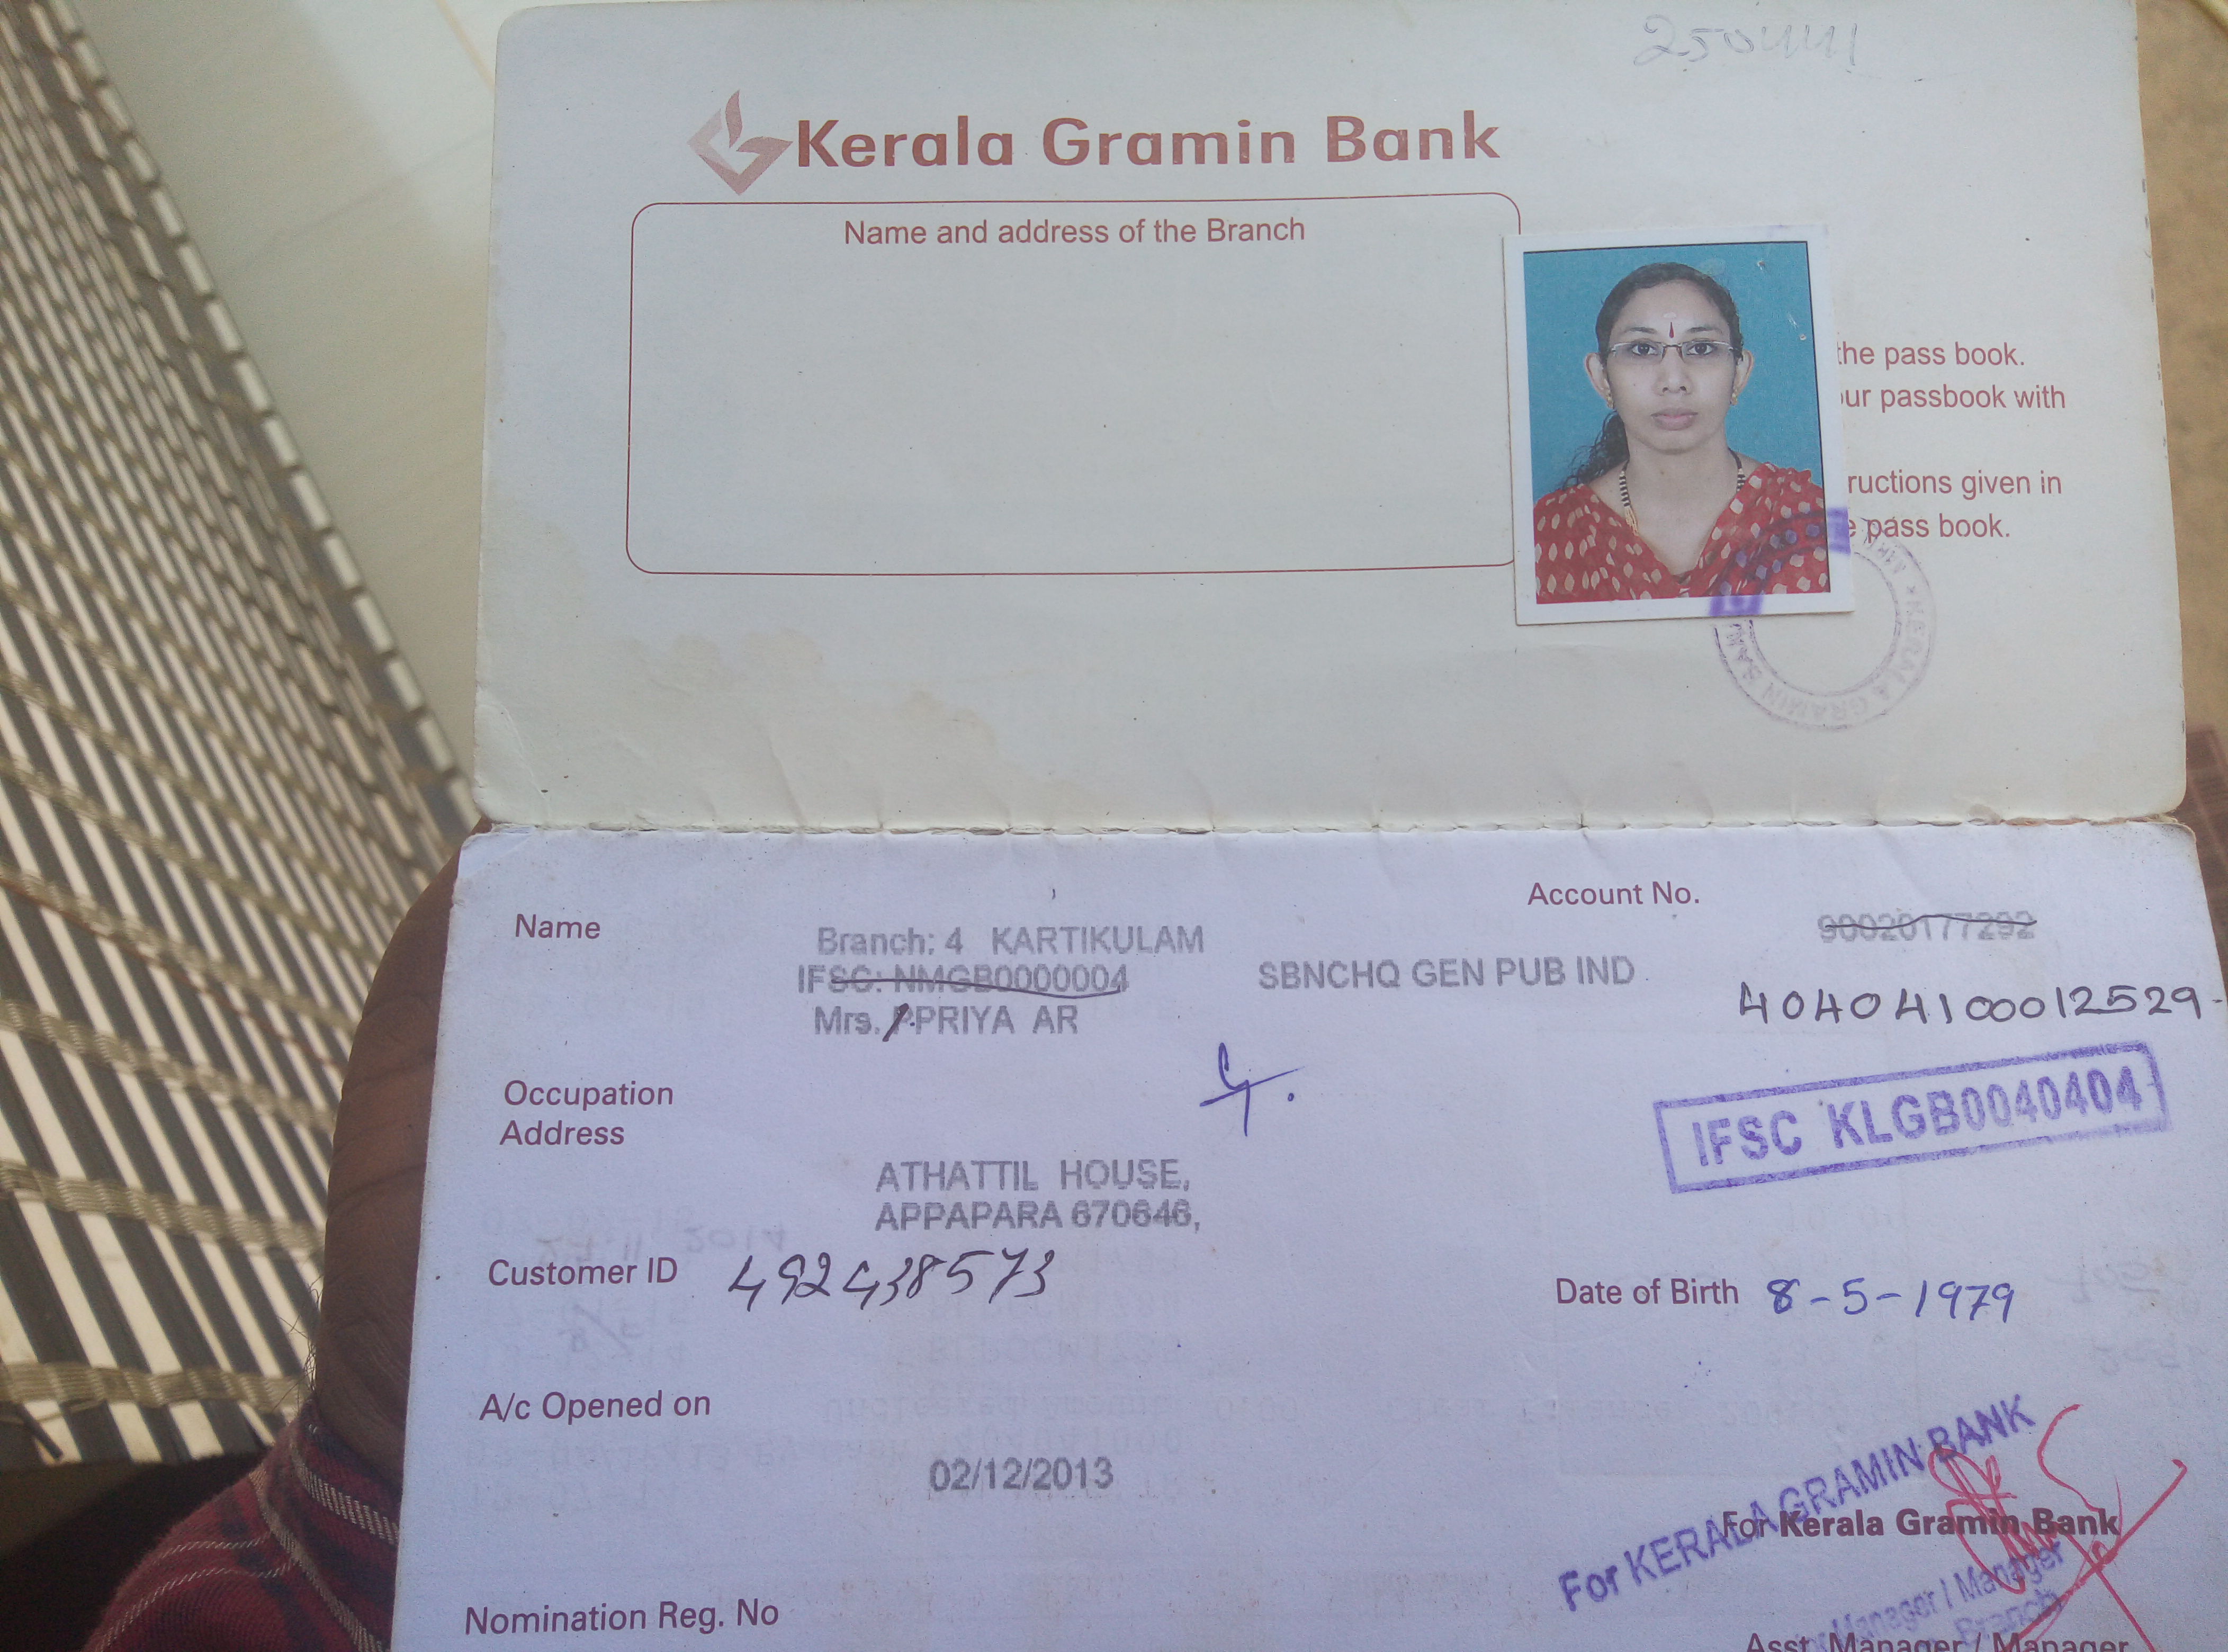 250441
Kerala Gramin Bank
Name and address of the Branch
the pass book.
ur passbook with
ructions given in
e pass book.
KERALA GRAMIN BANK
Account No.
Name
90020177292
Branch: 4 KARTIKULAM
IFSC: NMGB0000004
SBNCHQ GEN PUB IND
40404100012529
Mrs. PRIYA AR
IFSC KLGB0040404
Occupation
Address
ATHATTIL HOUSE,
APPAPARA 670646,
Customer ID 492438573
Date of Birth 8-5-1979
A/c Opened on
02/12/2013
For KERALA GRAMIN BANK
For Kerala Gramin Bank
Manager / Manager
Branch
Nomination Reg. No
Asst. Manager / Manager